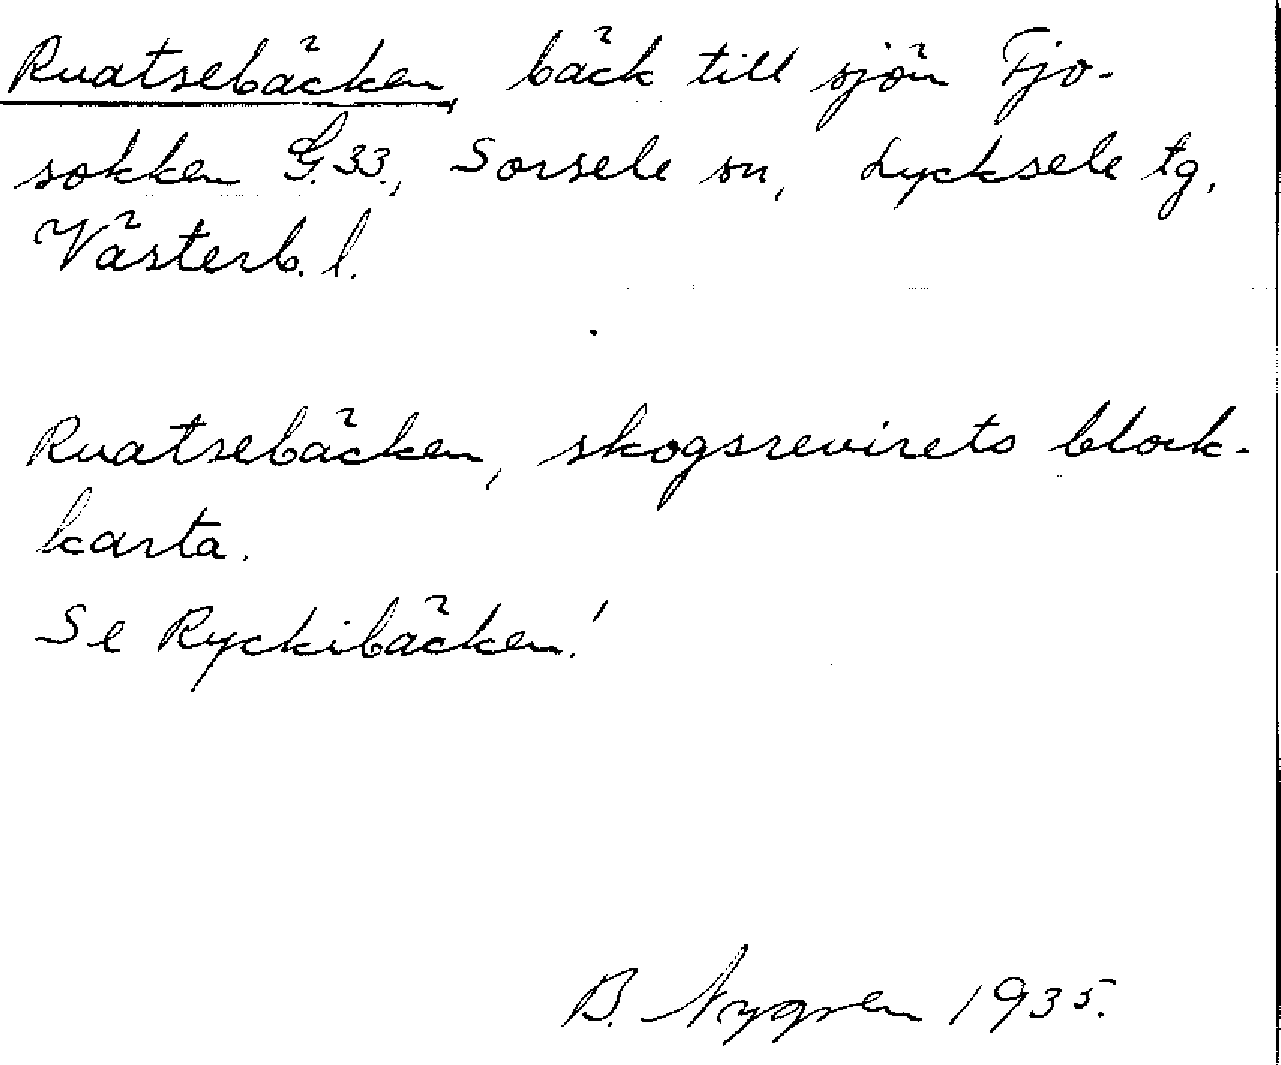 Ruatsebäcken, bäck till sjön Fjo-
sokken G.33., Sorsele sn, Lycksele tg,
Västerb. l.
Ruatsebäcken, skogsrevirets block-
karta.
Se Ryckibäcken!
B. Nygren 1935.